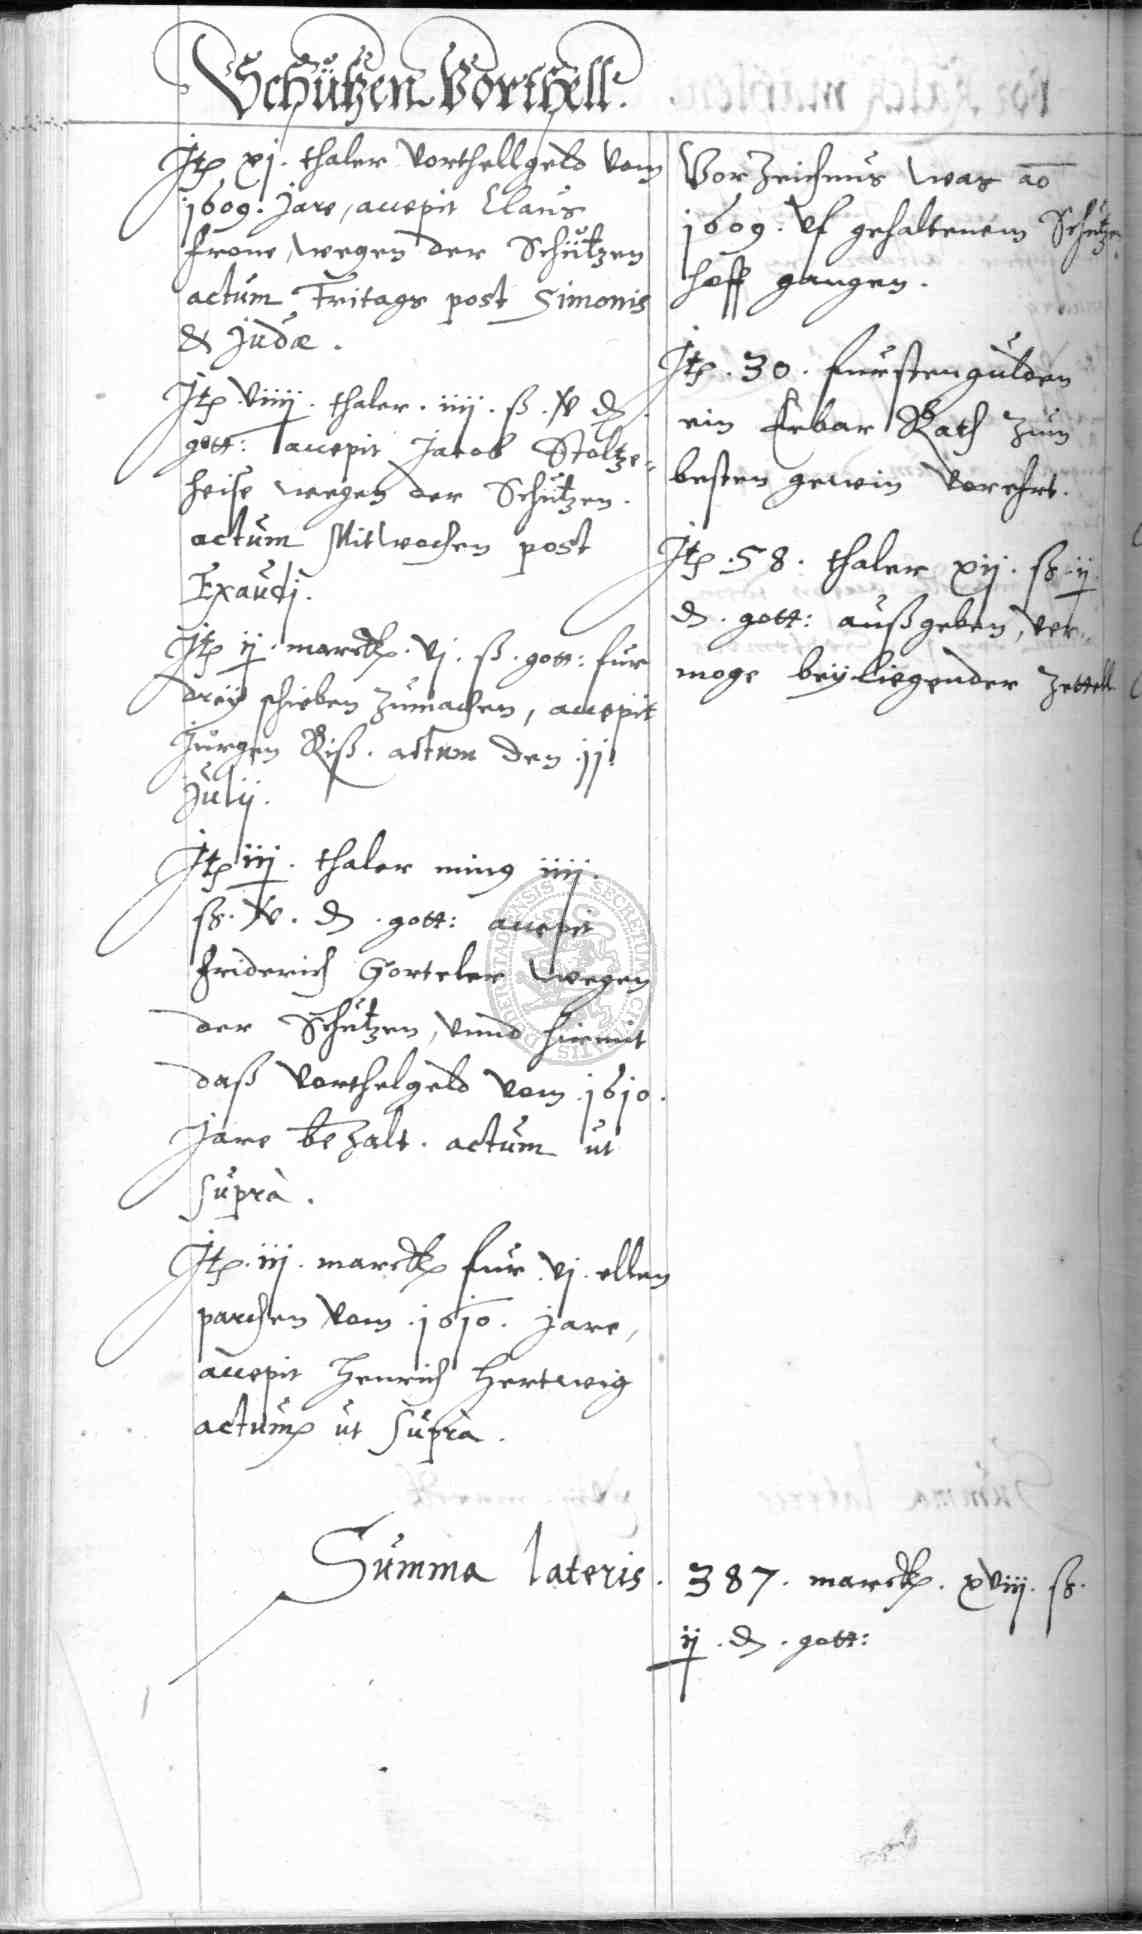 Schützen Vorthell.
Itp xj. thaler Vorthellgeld vom
1609. Jare, accepit Claus
frone, wegen der Schützen
actum Fritags post Simonis
& Judæ.
Itp. viiij. thaler. iiij. ß. iv ₰
gott: accepit Jacob Stoltze=
heise wegen der Schützen.
actum Mitwochen post
Exaudi.
Itp ij. marck. vj. ß. gott: fur
dreÿ schieben zumachen, accepit
Jurgen Riß. actum den jj.
Julij.
Itp iij. thaler ming iiij.
ß. iv. ₰. gott: accepit
friderich Gorteler wegen
der Schützen, vnnd hiermit
daß Vorthelgeld vom 1610.
Jare bezalt. actum ut
suprà.
Itp. iij. marck fur. vj. ellen
parchen vom. 1610. Jare,
accepit Henrich Hertwig
actum ut suprà.
Vorzeichnus was ao
1609. Vf gehaltenem Schützen
hoff gangen.
Itp. 30. furstengulden
ein Erbar Rath zum
besten gewin Vorehrt.
Itp. 58. thaler xij. ß. ij
₰. gott: außgeben, ver=
moge beÿliegender Zettell
Summa lateris. 387. marck. xviij. ß.
ij. ₰. gott:
SECRETUM CIVITATIS